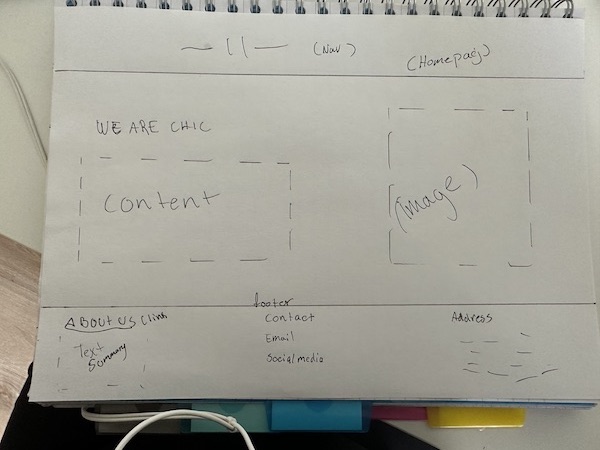 (Nav)
(Homepag)
WE ARE CHIC
Content
(Image)
footer
ABOUT US
Text
Summary
Contact
Email
Social media
Address